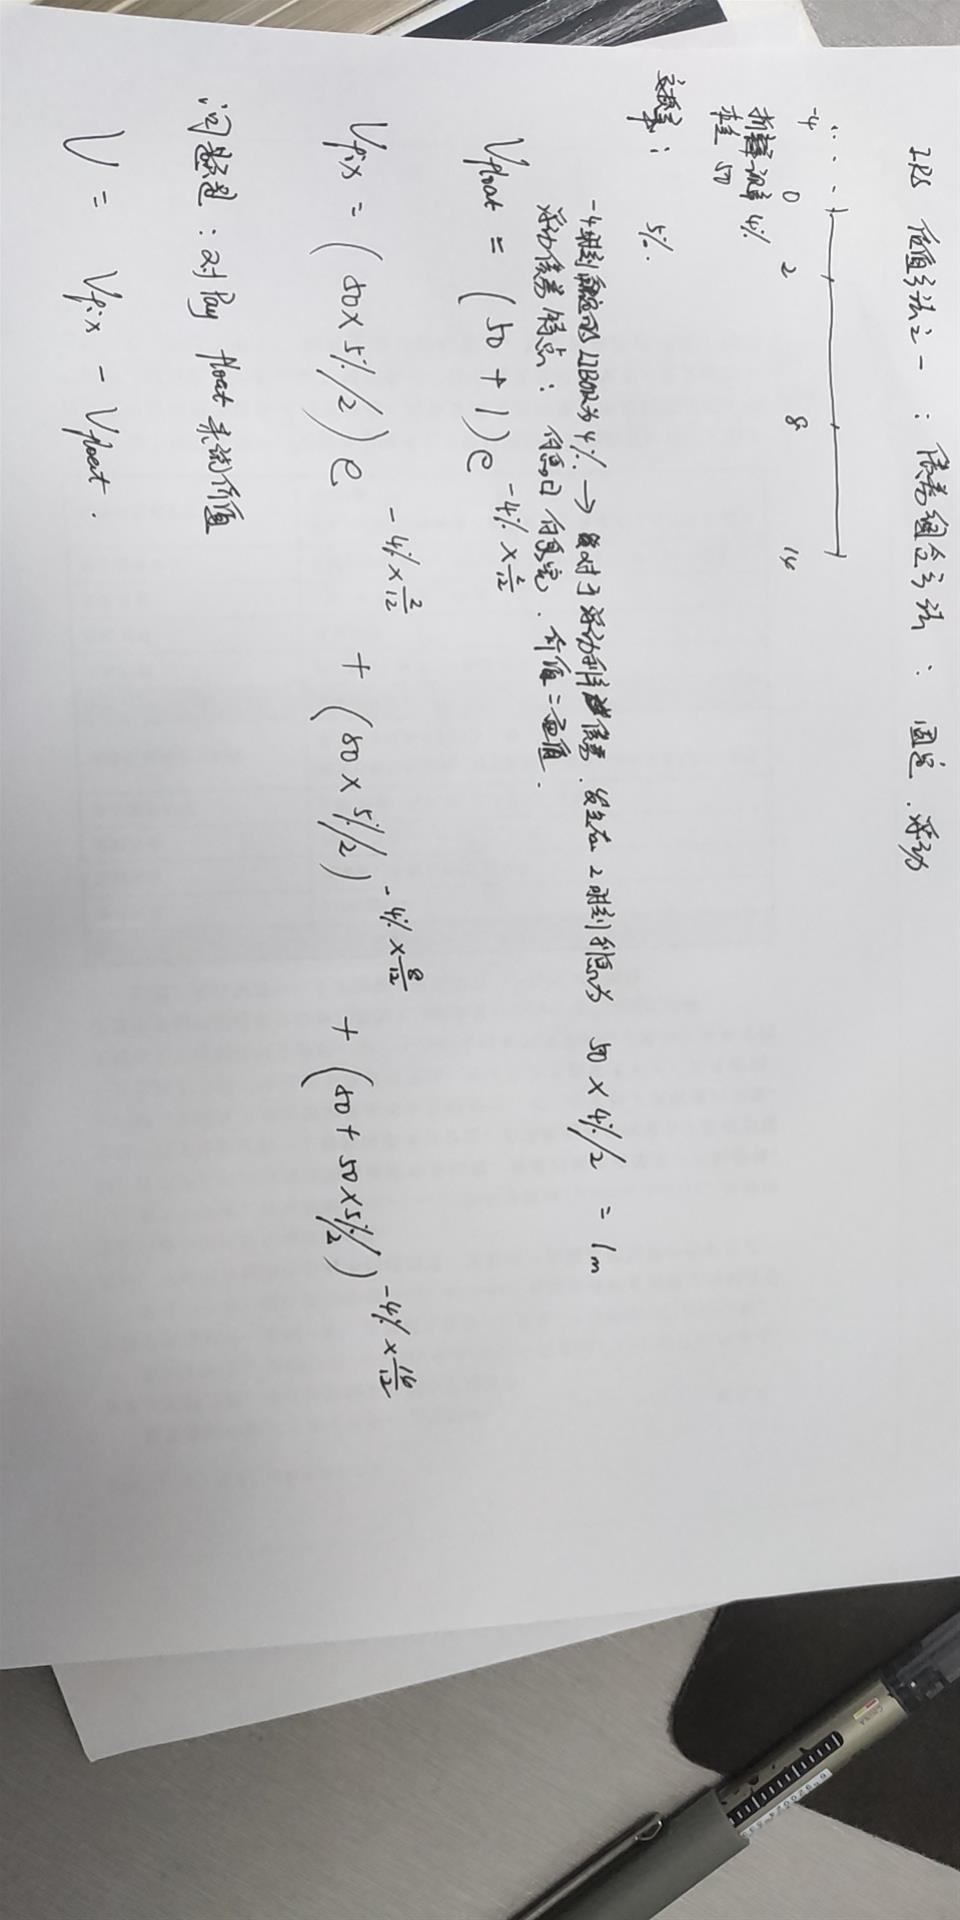 IRS 估值方法之一: 债券组合方法: 固定.浮动
-4 0 2 8 14
折现率 4%
本金 50
交换率: 5%.
-4时刻确定的LIBOR为4% → 对于浮动利率债券. 发生在2时刻利息为 50 × 4%/2 = 1m
浮动债券特点: 付息日付息完. 价值=面值.
Vfloat = (50+1)e^{-4% × 2/12}
Vfix = (50×5%/2)e^{-4%×2/12} + (50×5%/2)^{-4%×8/12} + (50+50×5%/2)^{-4%×14/12}
问题: 对Pay float 来说价值
V = Vfix - Vfloat.
CHINA